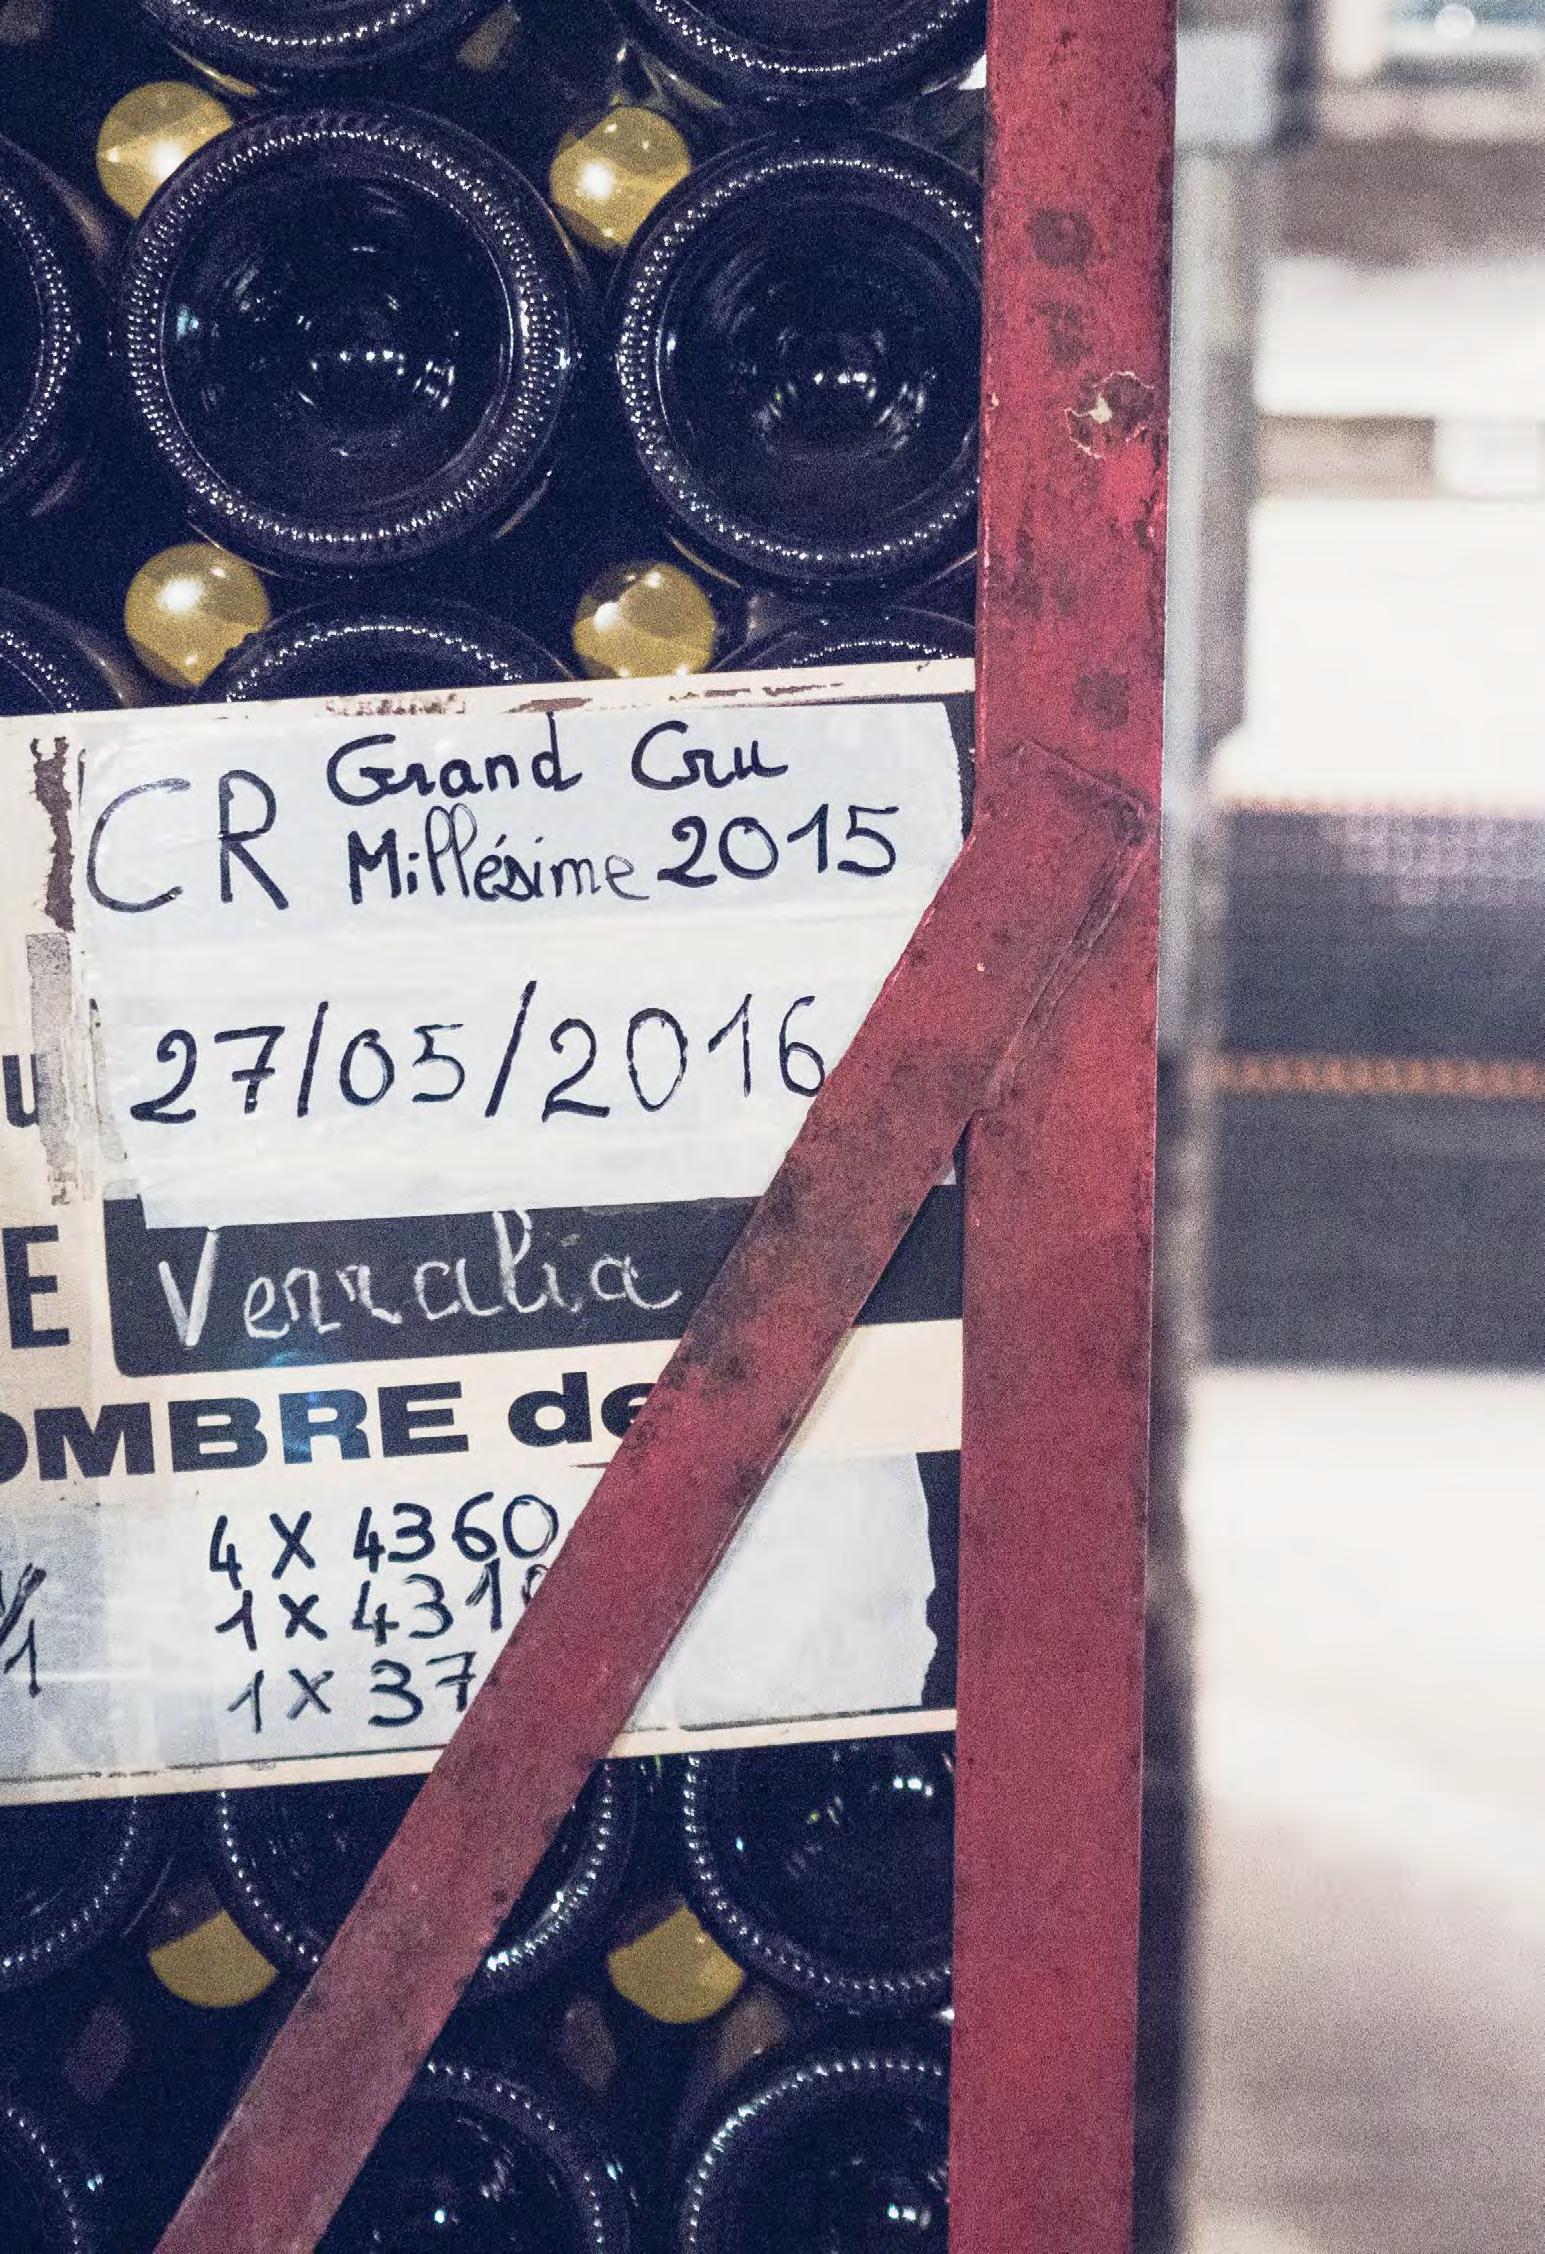 CR Grand Cru
Millésime 2015
27/05/2016
Verralia
OMBRE de
4 X 4360
1 X 431
1 X 37